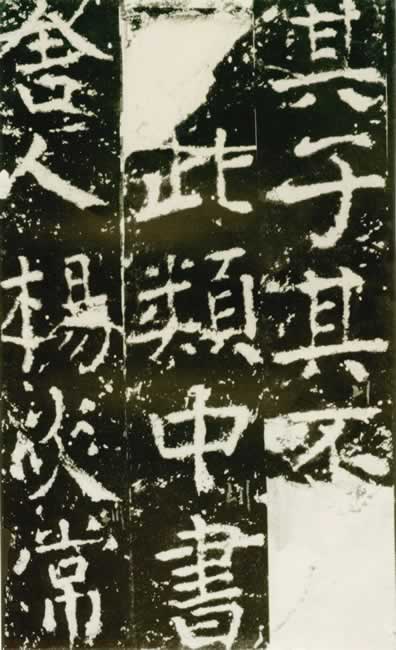 其子其不
此類中書
舍人楊炎常